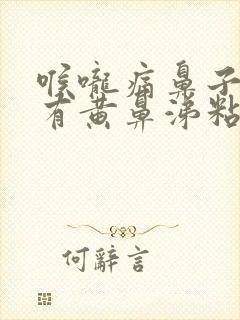 喉嚨痛鼻子
有黃鼻涕粘
何辭言